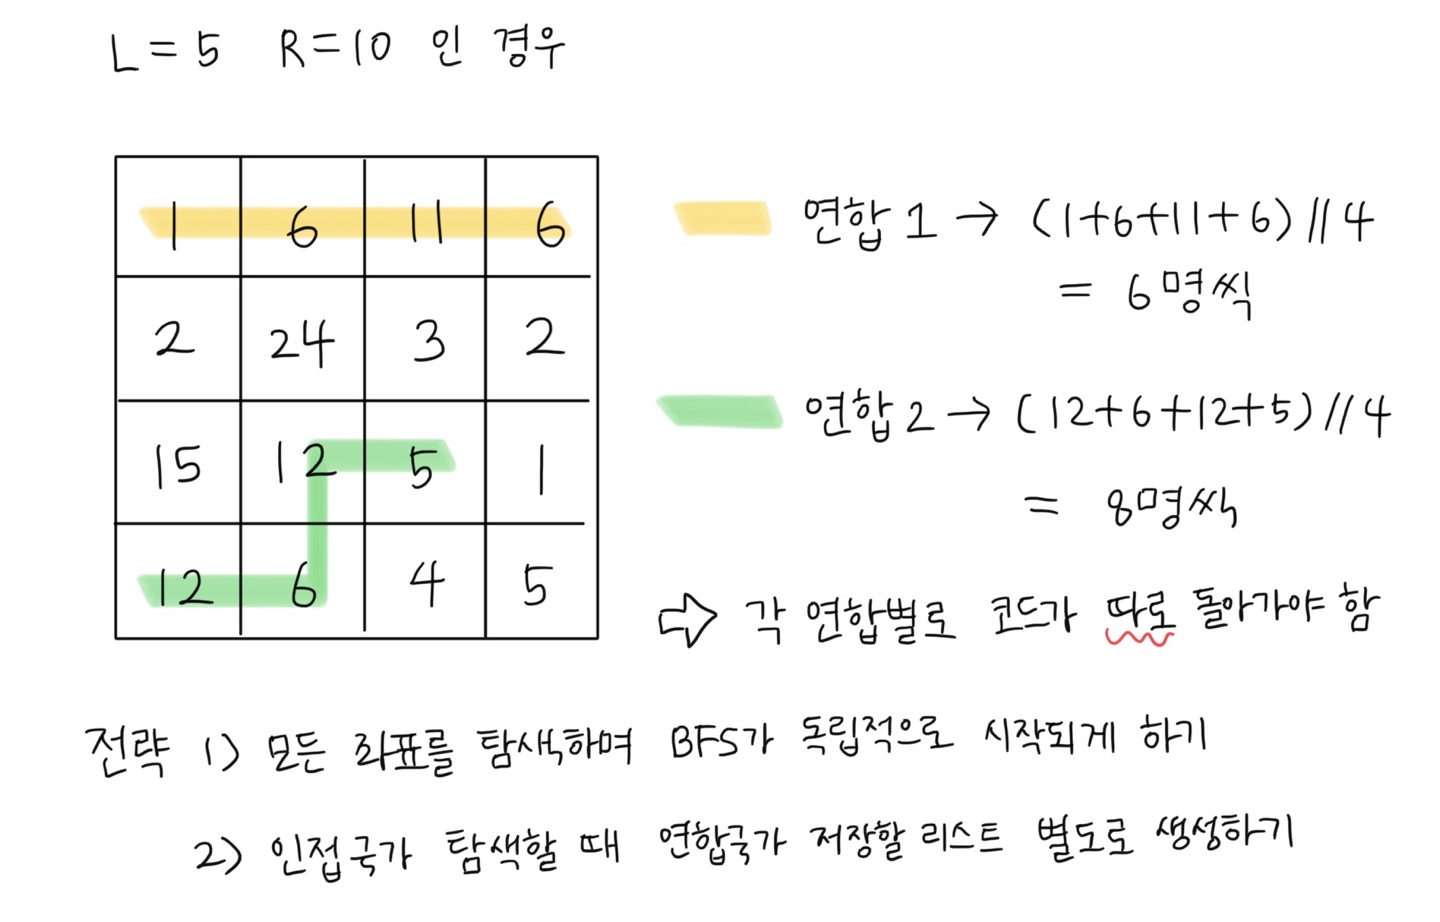 L = 5 R = 10 인 경우
1 6 11 6
2 24 3 2
15 12 5 1
12 6 4 5
연합 1 → (1+6+11+6)//4
= 6명씩
연합 2 → (12+6+12+5)//4
= 8명씩
⇨ 각 연합별로 코드가 따로 돌아가야 함
전략 1) 모든 좌표를 탐색하며 BFS가 독립적으로 시작되게 하기
2) 인접국가 탐색할 때 연합국가 저장할 리스트 별도로 생성하기